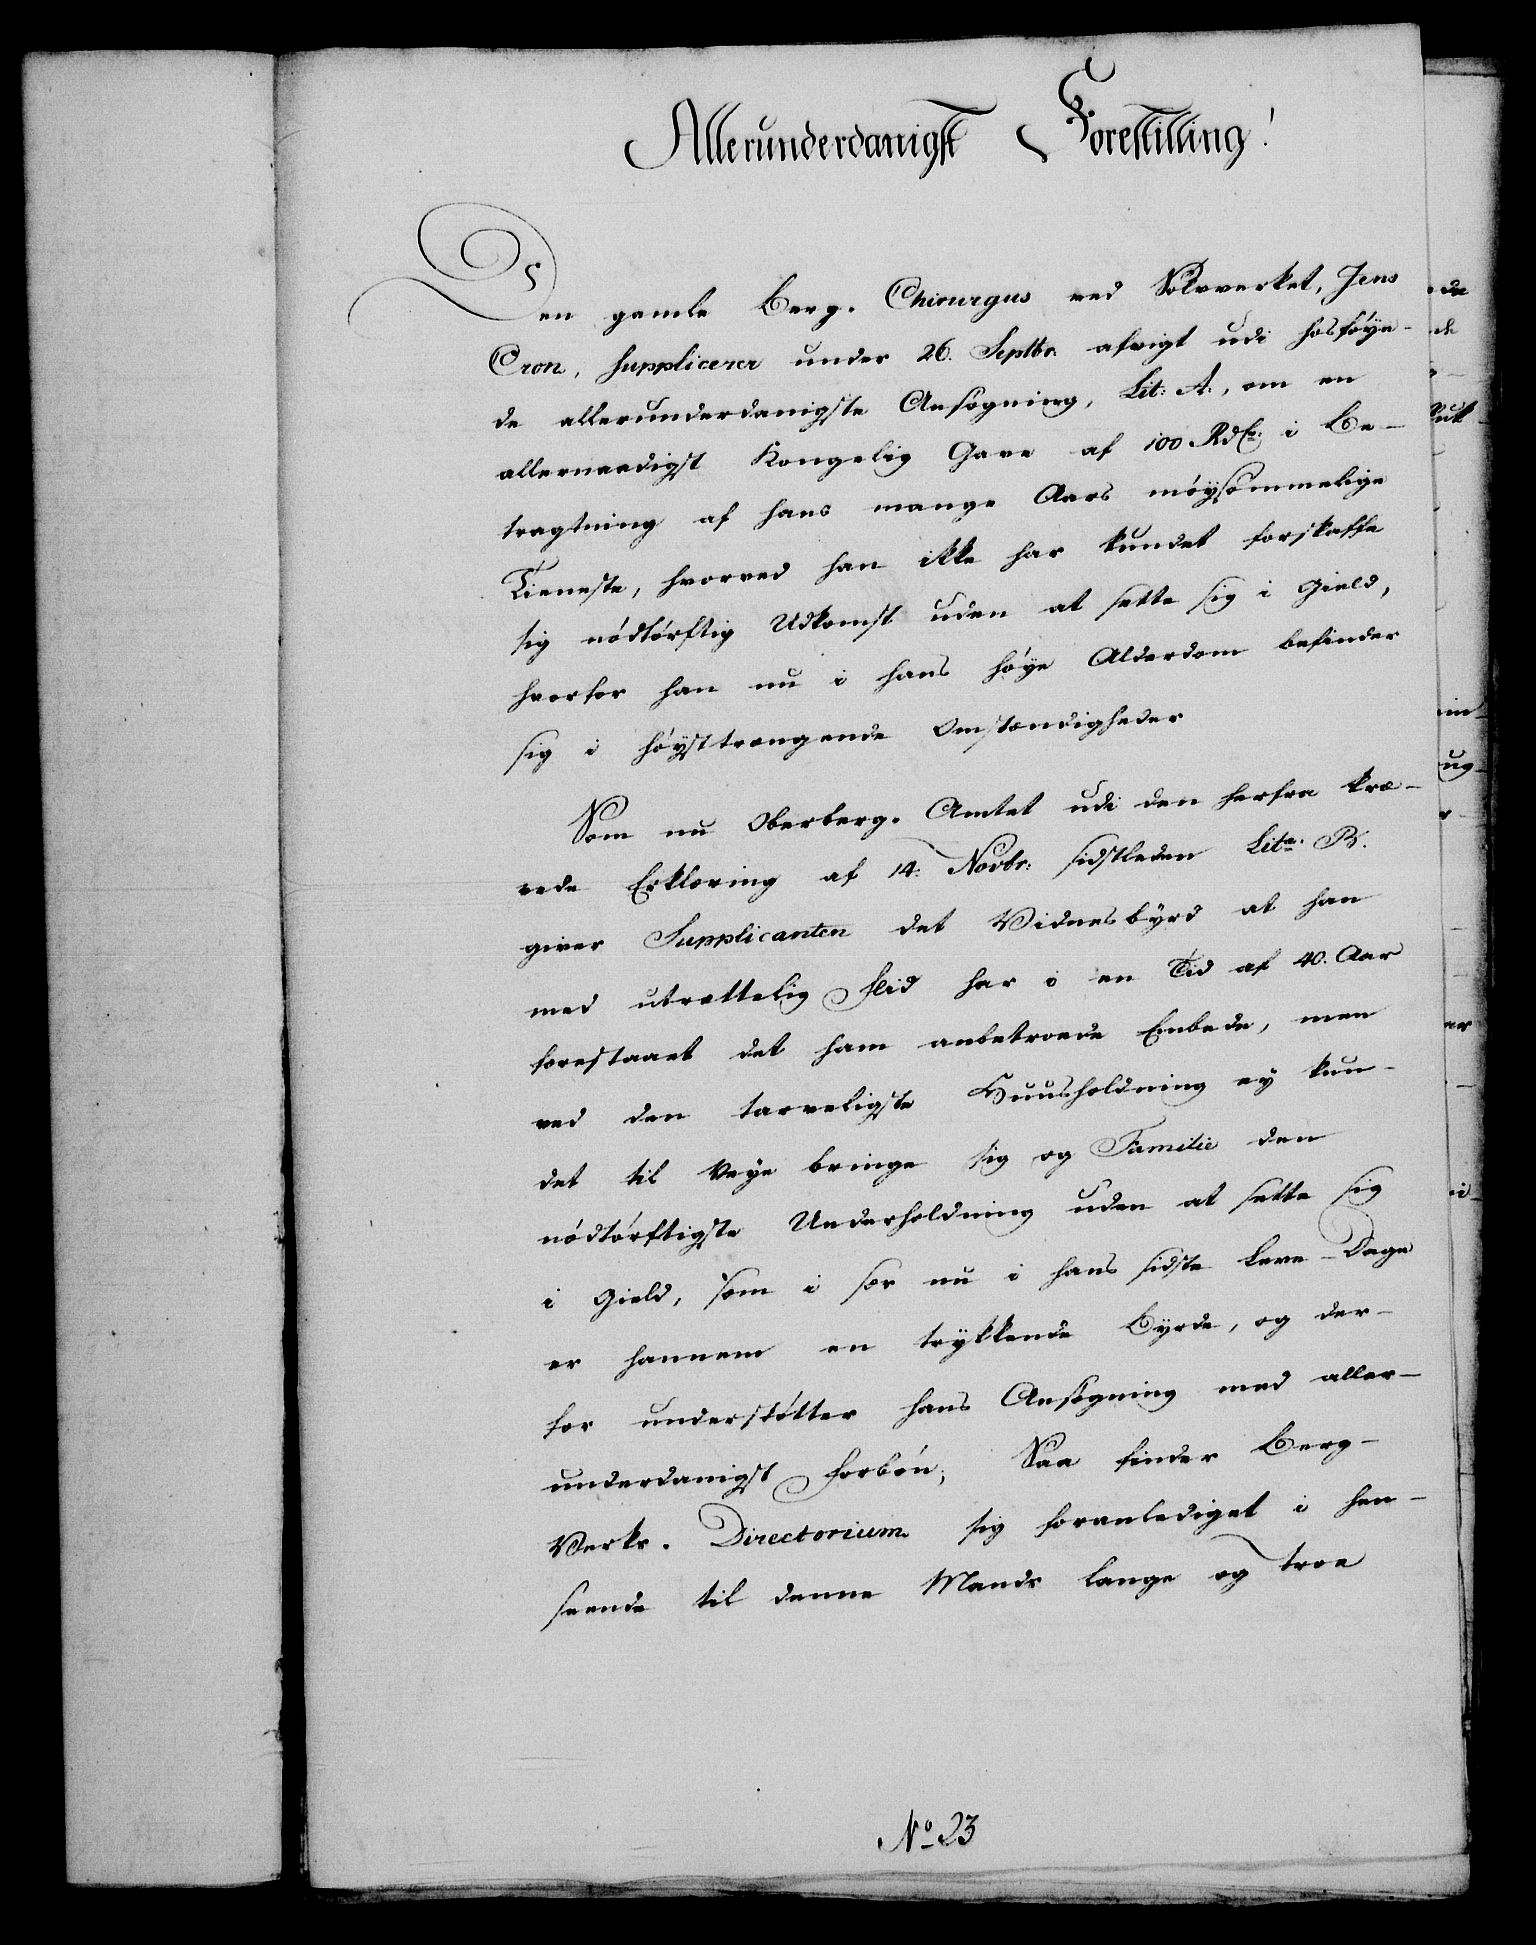 Allerunderdanigst Forestilling!
Den gamle Berg-Chirurgus ved Sölvverket, Jens
Cron, supplicerer under 26. Septbr. afvigt udi hosföyen-
de allerunderdanigste Ansögning, Lit: A:, om en
allernaadigst Kongelig Gave af 100 Rdlr. i Be-
tragtning af hans mange Aars möysommelige
Tieneste, hvorved han ikke har kundet forskaffe
sig nödtörftig Udkomst uden at sætte sig i Gield,
hvorfor han nu i hans höye Alderdom befinder
sig i höysttrængende Omstændigheder
Som nu Oberberg-Amtet udi den herfra kræ-
vede Erklæring af 14. Novbr: sidstleden Litr. B.
giver Supplicanten det Vidnesbyrd at han
med utrættelig Flid har i en Tid af 40. Aar
forestaaet det ham anbetroede Embede, men
ved den tarveligste Huusholdning ey kun-
det til veye bringe sig og Familie den
nödtörftigste Underholdning uden at sætte sig
i Gield, som i sær nu i hans sidste Leve-Dage
er hannem en trykkende Byrde, og der-
for understötter hans Ansögning med aller-
underdanigst Forbön; Saa finder Berg-
Verks-Directorium sig foranlediget i hen-
seende til denne Mands lange og troe
No 23